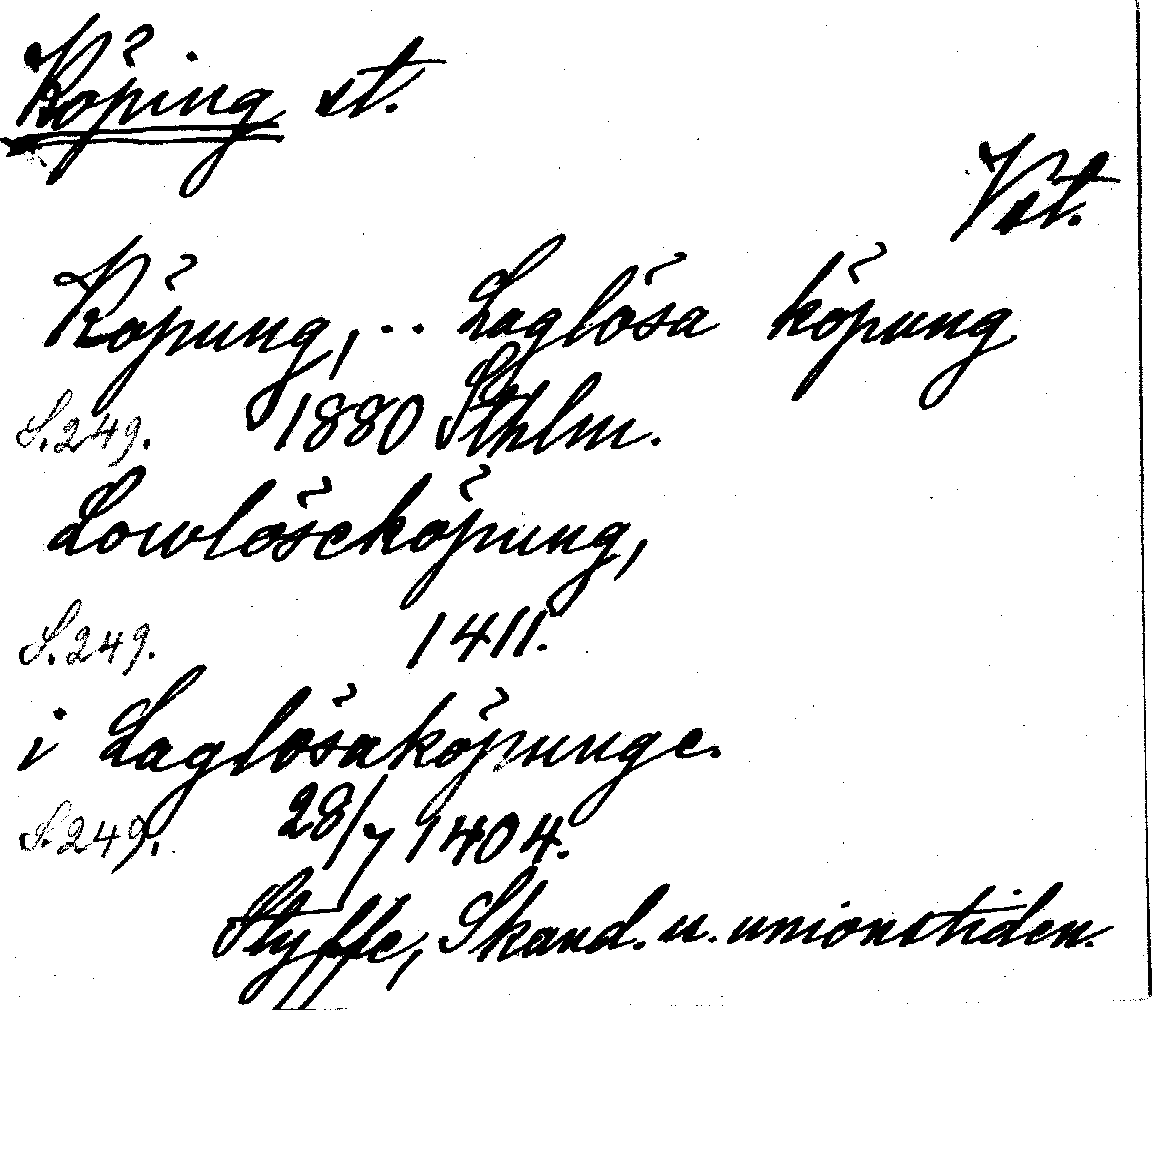 Köping st.
Vst.
Köpung, .. Laglösa köpung
S. 249. 1880 Sthlm.
Lowlöseköpung,
S. 249. 1411.
i Laglösaköpunge.
S. 249. 28/7 1404.
Styffe, Skand. u. unionstiden.